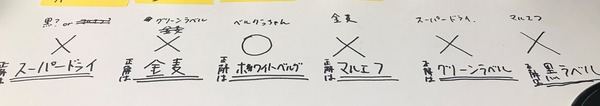 黒? or
グリーンラベル
金麦
ベルグラちゃん
金麦
スーパードライ.
マルエフ
正解は スーパードライ
正解は 金麦
正解は ホワイトベルグ
正解は マルエフ
正解は グリーンラベル
正解は 黒ラベル